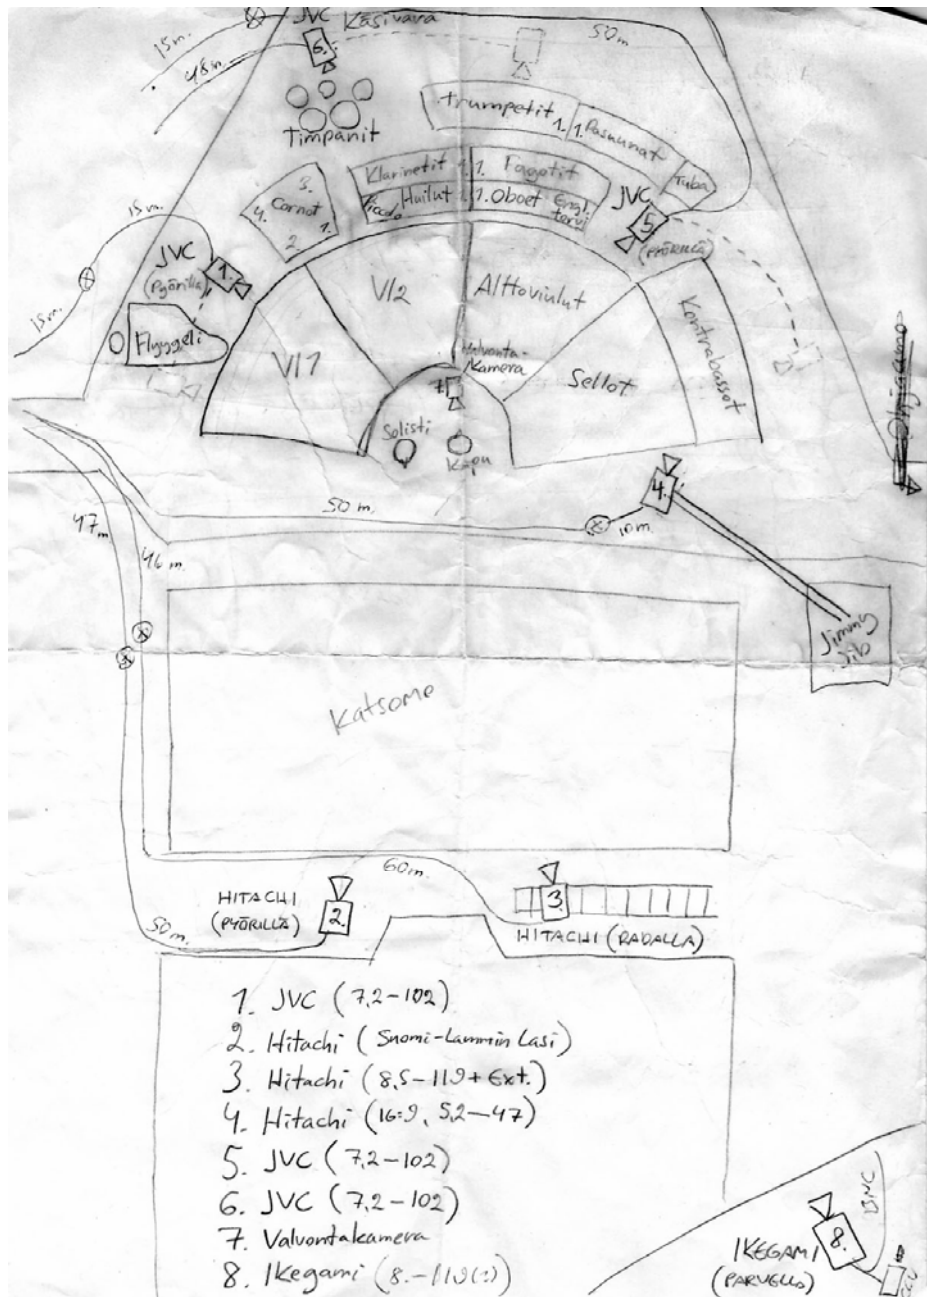 JVC Käsivara
15m.
6.
50m
48m.
Trumpetit 1.
1. Pasuunat
Timpanit
Tuba
Klarinetit 1.
1. Fagotit
3.
4. Cornot 1.
2.
Piccolo
Huilut 1.
1. Oboet
Engl. torvi
JVC
5
(PYÖRILLÄ)
15m.
JVC
(Pyörillä)
1.
15m.
Flyygeli
Vl2
Alttoviulut
Kontrabassot
Vl1
Valvonta-
kamera
7.
Sellot
Solisti
Kapu
50 m.
4.
10m.
47m
46 m.
Jimmy
Jib
Katsomo
60m.
HITACHI
(PYÖRILLÄ)
2.
3
50m.
HITACHI (RADALLA)
1. JVC (7,2-102)
2. Hitachi (Suomi-Lammin Lasi)
3. Hitachi (8,5-119 + Ext.)
4. Hitachi (16:9, 5,2-47)
5. JVC (7,2-102)
6. JVC (7,2-102)
7. Valvontakamera
8. Ikegami (8.-119(?))
BNC
8.
IKEGAMI
(PARVELLA)